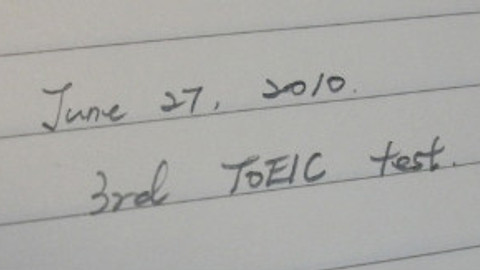 June 27, 2010.
3rd TOEIC test.